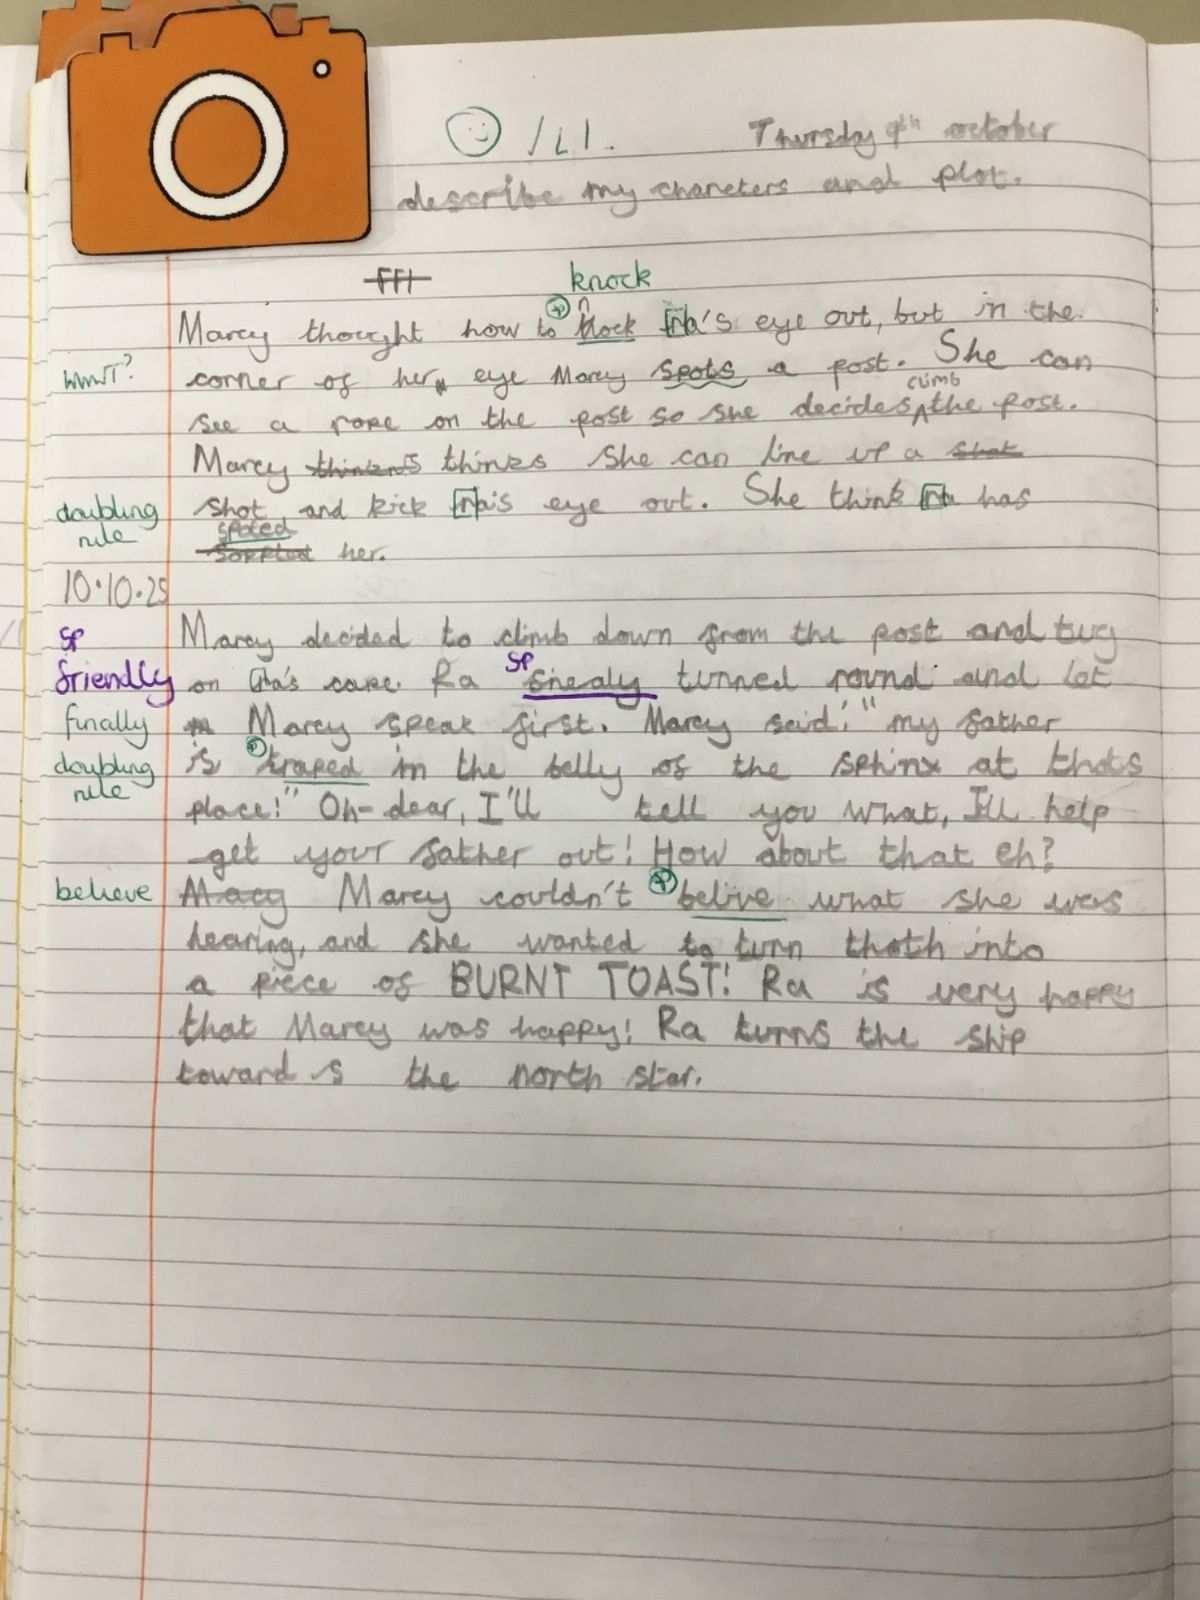 /LI. Thursday 9th october
describe my charcters and plot.
FFI
knock
Marcy thought how to nock ra's eye out, but in the
WWT?
corner of her eye Marcy spots a post. She can
climb
see a rope on the post so she decides the post.
Marcy thinkns thinks She can line up a shot
doubling
rule
shot and kick ra's eye out. She think ra has
spoted
her.
10.10.25
Marcy decided to climb down from the post and tug
sp
friendly
on Ra's cape. Ra sp snealy turned round and let
finally
Marcy speak first. Marcy said: "my father
doubling
rule
is sp traped in the belly of the sphinx at thots
place!" Oh-dear, I'll tell you what, I'll help
get your father out! How about that eh?
believe
Macy Marcy couldn't sp belive what she was
hearing, and she wanted to turn thoth into
a piece of BURNT TOAST! Ra is very happy
that Marcy was happy! Ra turns the ship
towards the north star.